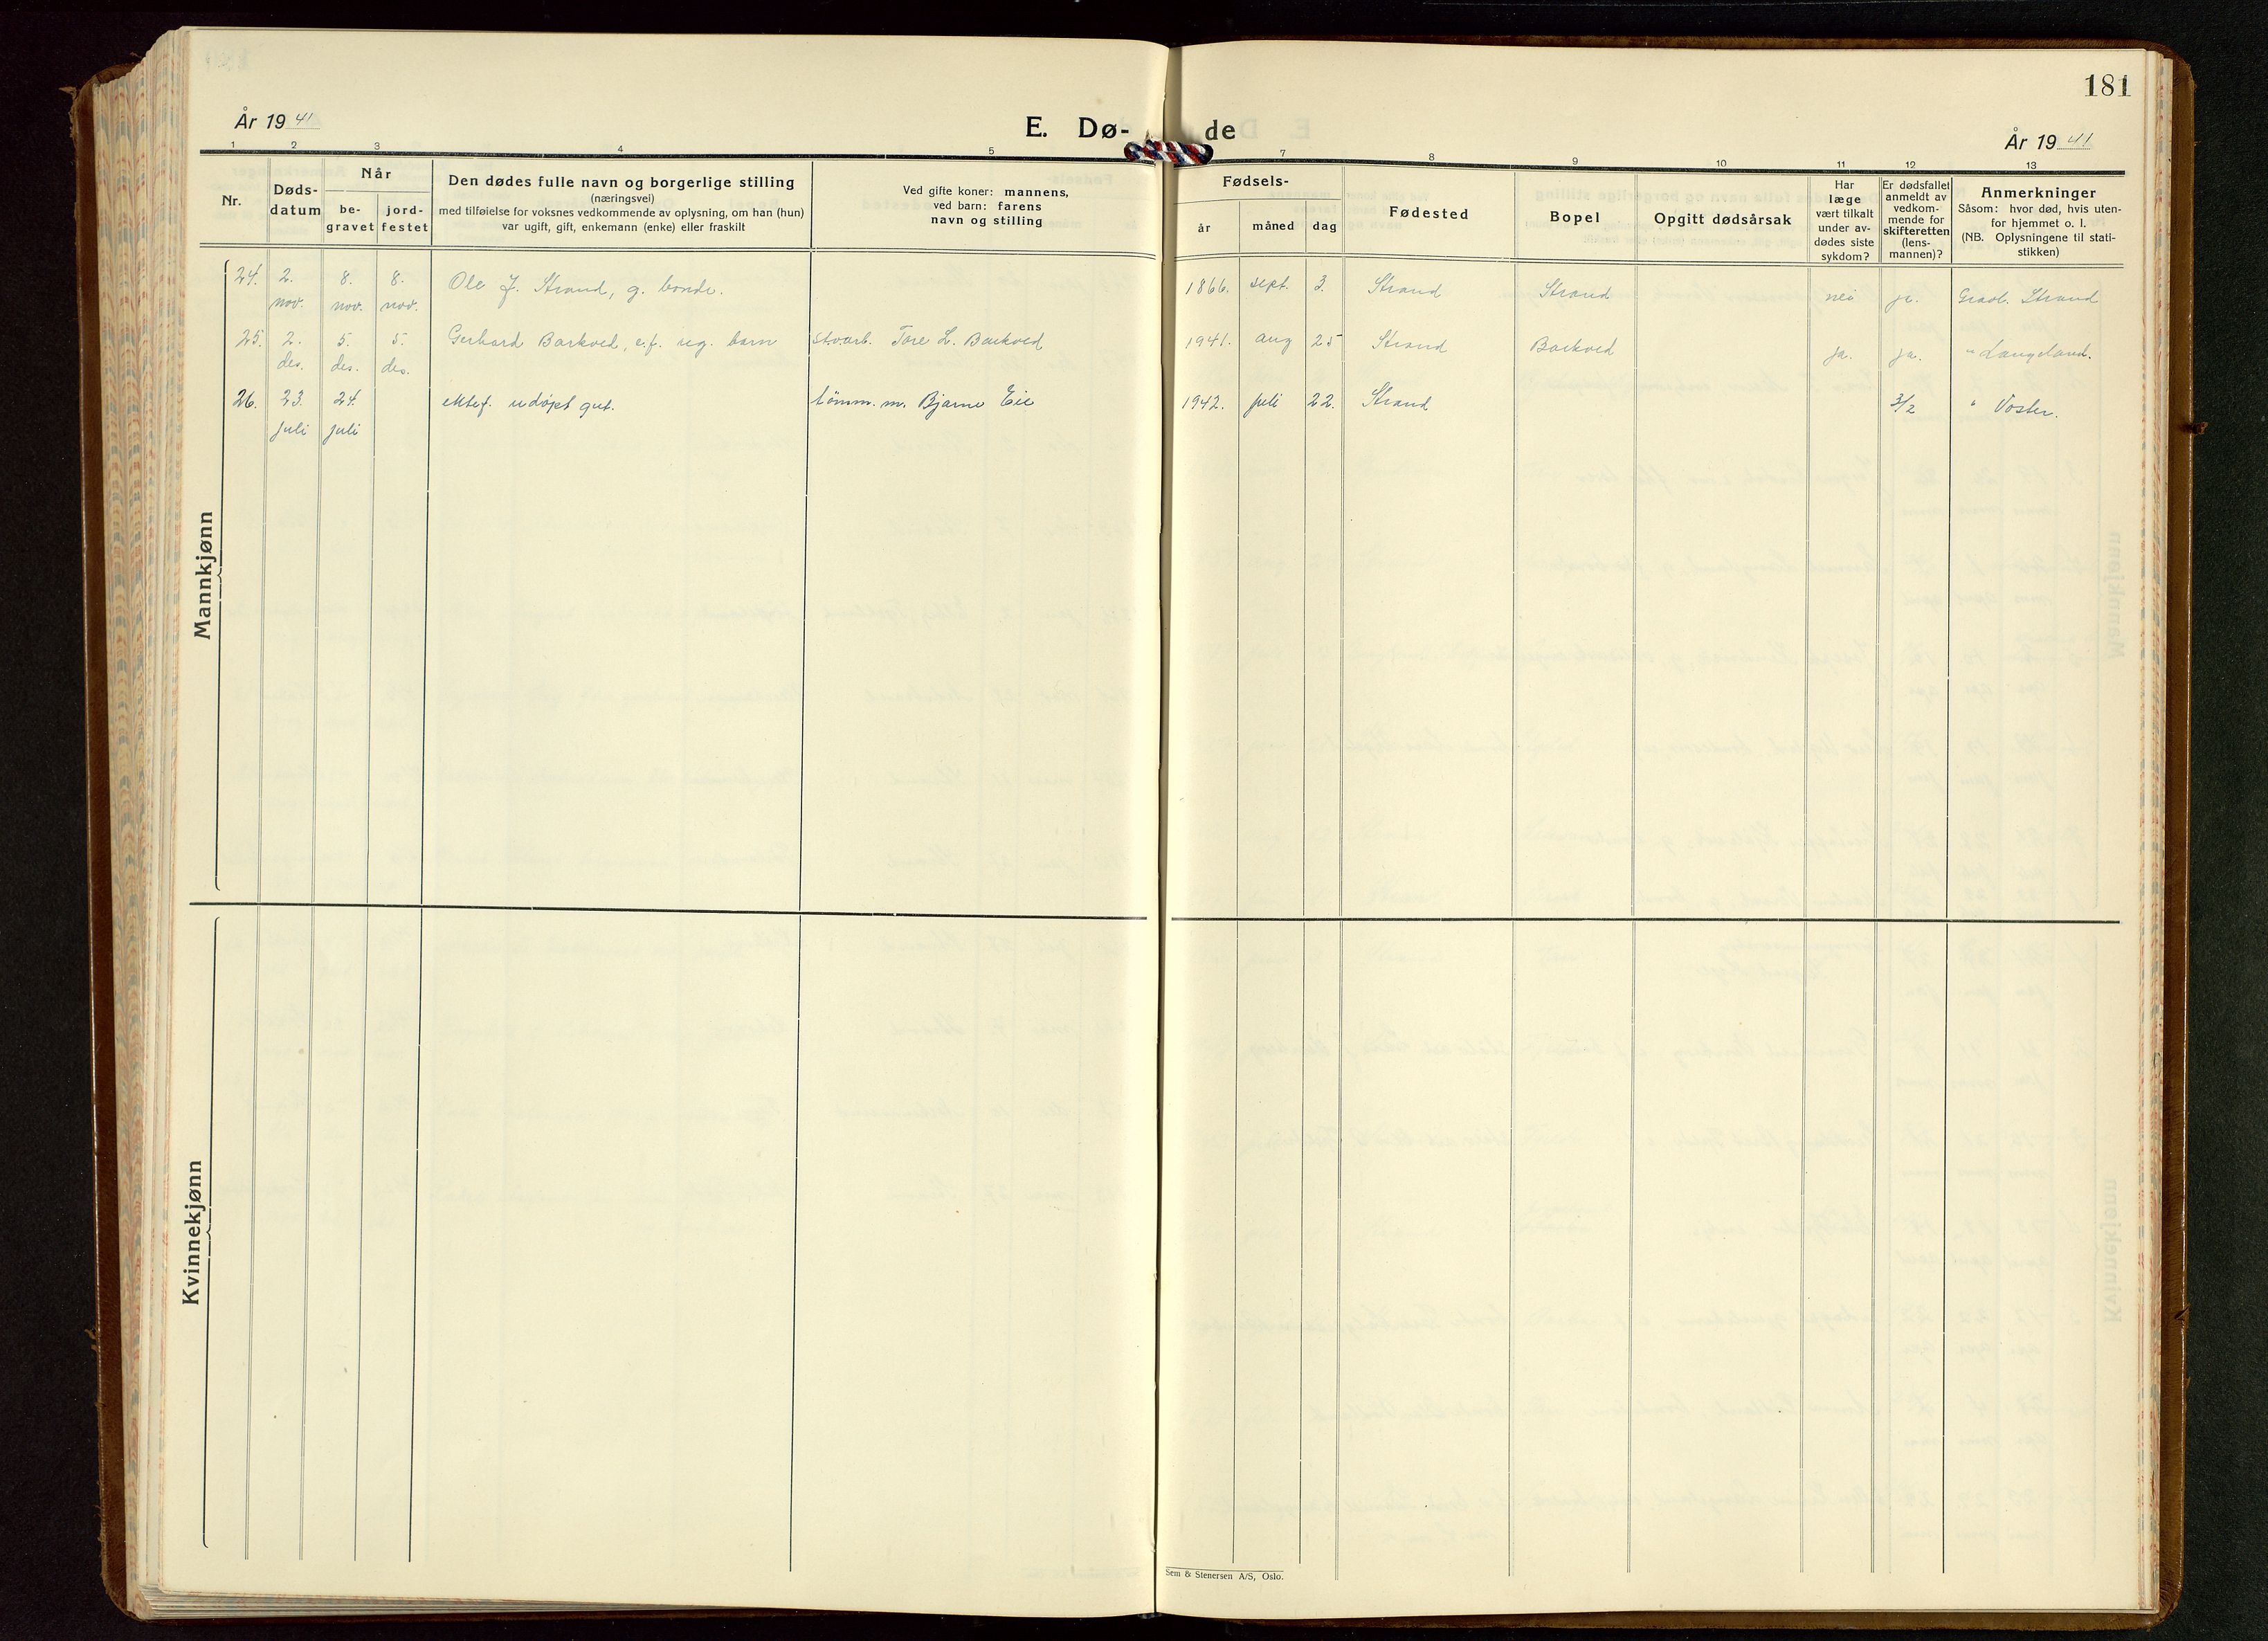 181
År 19 41
E. Dø-
de
År 19 41
1 2 3 4 5 7 8 9 10 11 12 13
Nr.
Døds-
datum
Når
be-
gravet
jord-
festet
Den dødes fulle navn og borgerlige stilling
(næringsvei)
med tilføielse for voksnes vedkommende av oplysning, om han (hun)
var ugift, gift, enkemann (enke) eller fraskilt
Ved gifte koner: mannens,
ved barn: farens
navn og stilling
Fødsels-
år
måned
dag
Fødested
Bopel
Opgitt dødsårsak
Har
læge
vært tilkalt
under av-
dødes siste
sykdom?
Er dødsfallet
anmeldt av
vedkom-
mende for
skifteretten
(lens-
mannen)?
Anmerkninger
Såsom: hvor død, hvis uten-
for hjemmet o. l.
(NB. Oplysningene til stati-
stikken)
Mannkjønn
24. 2. 8. 8. Ole J. Strand, g. bonde. 1866. sept. 3. Strand Strand nei ja. Gravl. Strand
nov. nov. nov.
25. 2. 5. 5. Gerhard Barkved, e.f. ug. barn Stvarb. Tore L. Barkved 1941. aug 25 Strand Barkved ja. ja. " Langeland.
des. des. des.
26. 23. 24. ektef. udøpt gut. tømm. m. Bjarne Eie 1942. juli 22. Strand 3/2 " Voster.
juli juli
Kvinnekjønn
Sem & Stenersen A/S, Oslo.